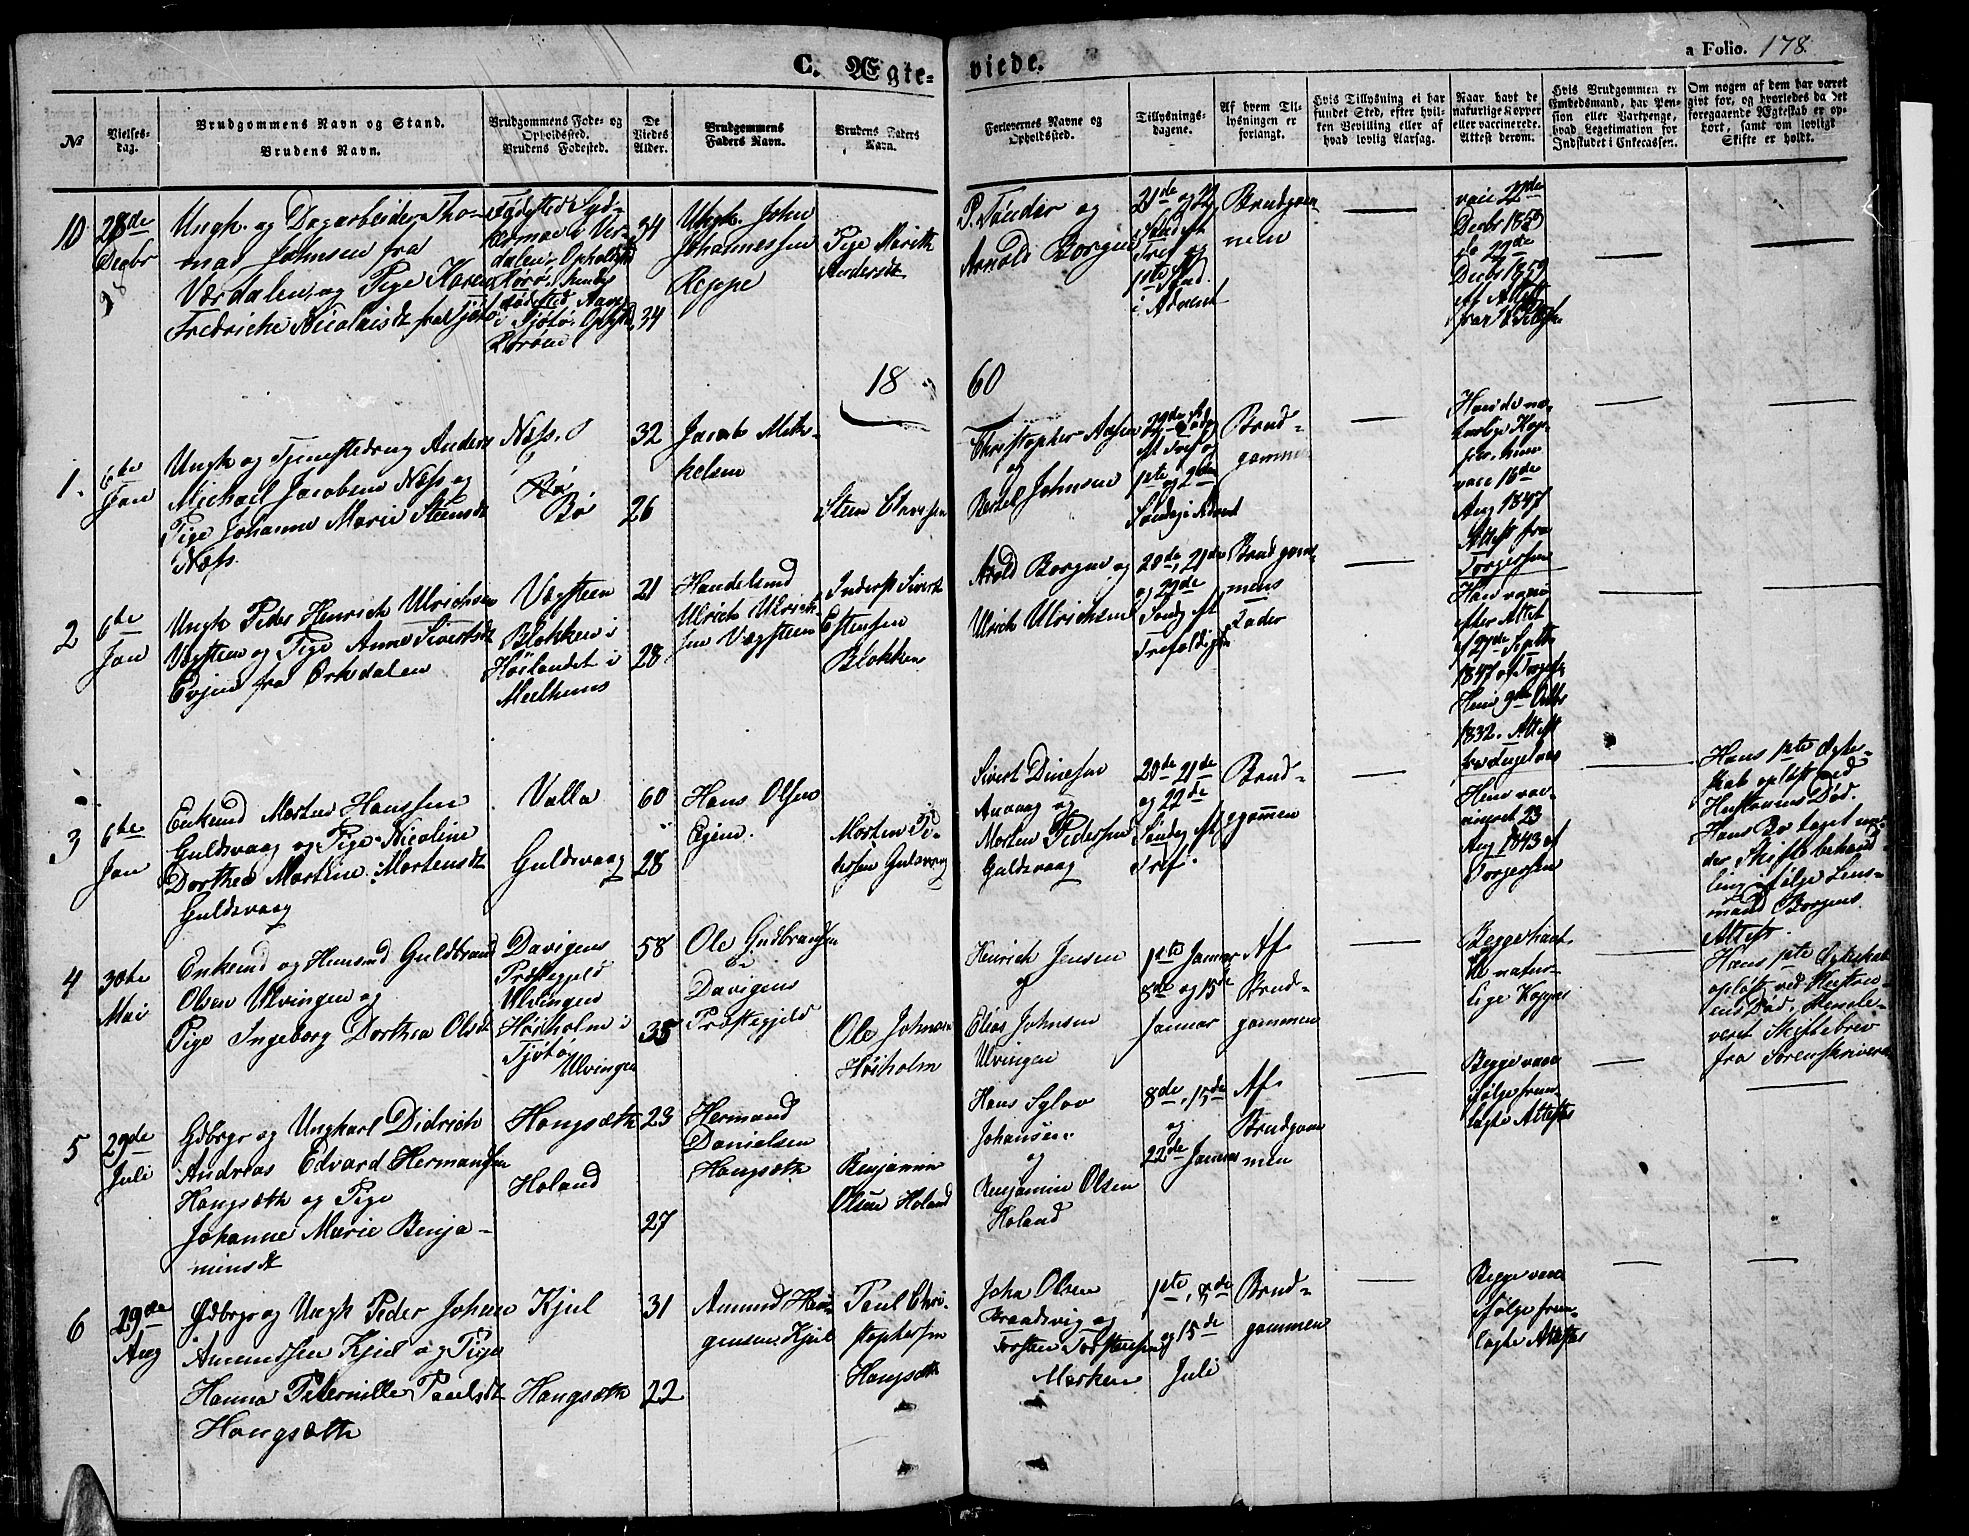 C. Ægte-
viede.
a Folio. 178
№
Vielses-
dag.
Brudgommens Navn og Stand.
Brudens Navn.
Brudgommens Føde- og
Opholdssted.
Brudens Fødested.
De
Viedes
Alder.
Brudgommens
Faders Navn.
Brudens Faders
Navn.
Forlovernes Navne og
Opholdssted.
Tillysnings-
dagene.
Af hvem Til-
lysningen er
forlangt.
Hvis Tillysning ei har
fundet Sted, efter hvil-
ken Bevilling eller af
hvad lovlig Aarsag.
Naar havt de
naturlige Kopper
eller vaccinerede.
Attest derom.
Hvis Brudgommen er
Embedsmand, har Pen-
sion eller Vartpenge,
hvad Legetimation for
Indskudet i Enkecassen.
Om nogen af dem har været
gift før, og hvorledes da det
foregaaende Ægteskab er op-
hørt, samt om lovligt
Skifte er holdt.
10
28de
Decbr
Ungk. og Dagarbeider Tho-
mas Johnsen fra
Værdalen, og Pige Karen
Fredricke Nicolaisdt fra Tjøtø
34
34
Ungk. John
Johannessen
Reppe
Pige Marith
Andersdt
P. Tønder og
Arnold Borgen
21de og 22
Sønd. Af
Tref og
1ste Sønd.
i Advent
Brudgom-
men
vacc 22de
Decbr 1859
22de
Decbr 1859
Attest
1860
1.
6te
Jan
Ungk og Tjenestedreng Anders
Michael Jacobsen Næss og
Pige Johanne Marie Steensdt
Næss
Næss
Bø
32
26
Jacob Mik-
kelsen
Steen Clausen
Christopher Aasen
og
Bertel Johnsen
22de
Af Tref og
1ste og 2den
Søndag i Advent
Brud-
gommen
Han de na-
turlige Kop-
per, hun
vacc 16de
Aug 1847
Attest fra
Torgersen
2
6te
Jan
Ungk Peder Henrich Ulrichsen
Vægsteen og Pige Anne Sivertsdt
Evjen fra Orkedalen
Vægsteen
Blokken i
Høilandet i
Meelhuus
21
28
Handelsmd
Ulrich Ulrich-
sen Vægsteen
Inderst Sivert
Estensen
Blokken
Arold Borgen og
Ulrich Ulrichsen
20de, 21de
og 22de
Søndg Af
Trefoldigh
Brudgom-
mens
Fader
Han vacc
efter Attest
af 27de Septbr
1847 af Torgers
Hun 9de Octbr
1832. Attest
3
6te
Jan
Enkemd Morten Hanssen
Guldsvaag og Pige Nicoline
Dorthea Martine Mortensdt
Guldsvaag
Valla
Guldsvaag
60
28
Hans Olsen
Morten Pe-
dersen Gulsvaag
Sivert Dinesen
Aavaag og
Morten Pedersen
Guldsvaag
20de 21de
og 22de
Søndag Af
Tref.
Brud-
gommen
Hun vac-
cineret 23
Aug 1843 af
Torgersen
Hans 1ste Ægte-
skab opløst ved
Hustruens Død.
Hans Bo taget un-
der Skiftebehand-
ling ifølge Lens-
mand Borgens
Attest.
4
30te
Mai
Enkemd og Huusmd Guldbrand
Olsen Ulvingen og
Pige Ingeborg Dorthea Olsdt
Davigens
Præstegjeld
Ulvingen
Høiholm i
Tjøtø
Ulvingen
58
35
Ole Gudbrandsen
i
Davigens
Præstegjeld
Ole Johnsen
Høiholm
Henrich Jensen
og
Elias Johnsen
Ulvingen
1ste Januar
8de og 15de
Januar
Af
Brud-
gommen
Begge havt
de natur-
lige Kopper
Hans 1ste Ægteskab
opløst ved Hustru-
ens Død,
veret Skiftebrev
fra Sorenskriveren
5
29de
Juli
Gdbrgr og Ungkarl Didrich
Andreas Edvard Hermansen
Hongsæth og Pige
Johanne Marie Benja-
minsdt
Hongsæth
Holand
23
27
Hermand
Danielsen
Hongsæth
Benjamin
Olsen Holand
Hans Sylov
Johansen
og
Benjamin Olsen
Holand
8de, 15de
og
22de Januar
Af
Brudgom
men
Begge vacc
ifølge frem-
lagte Attester
6
29de
Aug
Gdbrgr og Ungk Peder Johan
Amundsen Kjul og Pige
Hanna Peternille Paulsdt
Hongsæth
Kjul
Hongsæth
31
22
Amund Hen-
Kjul
Paul Chri-
stophersen
Hongsæth
John Olsen
Brandsvig og
Torsten Torstensen
Marken
1ste, 8de
og 15de
Juli
Brud-
gommen
Begge vacc
ifølge frem-
lagte Attester